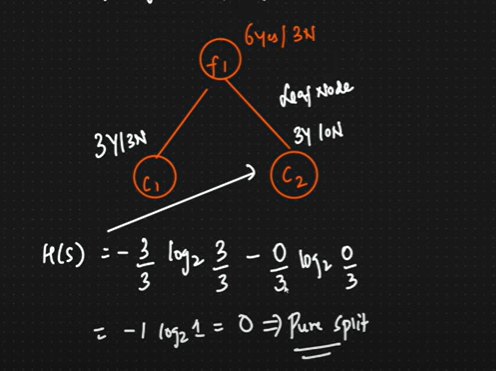 6Yes/3N
f1
Leaf Node
3Y/3N
3Y/0N
C1
C2
H(S) = - 3/3 log2 3/3 - 0/3 log2 0/3
= -1 log2 1 = 0 ⇒ Pure split